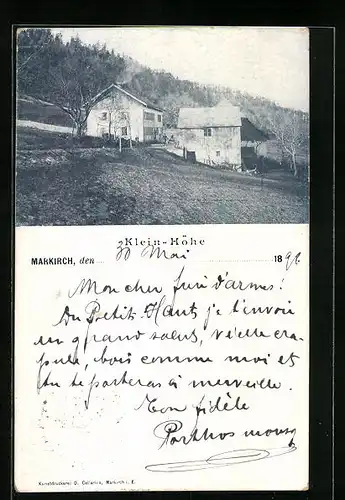 Klein-Höhe
MARKIRCH, den 30 Mai 1898
Mon cher furi d'armes!
Du Petit-Haut je t'envoie
un grand salut, vieille cra-
pule, bois comme moi et
tu te porteras à merveille.
Ton fidèle
Porthos
Kunstdruckerei D. Cellarius, Markirch i. E.